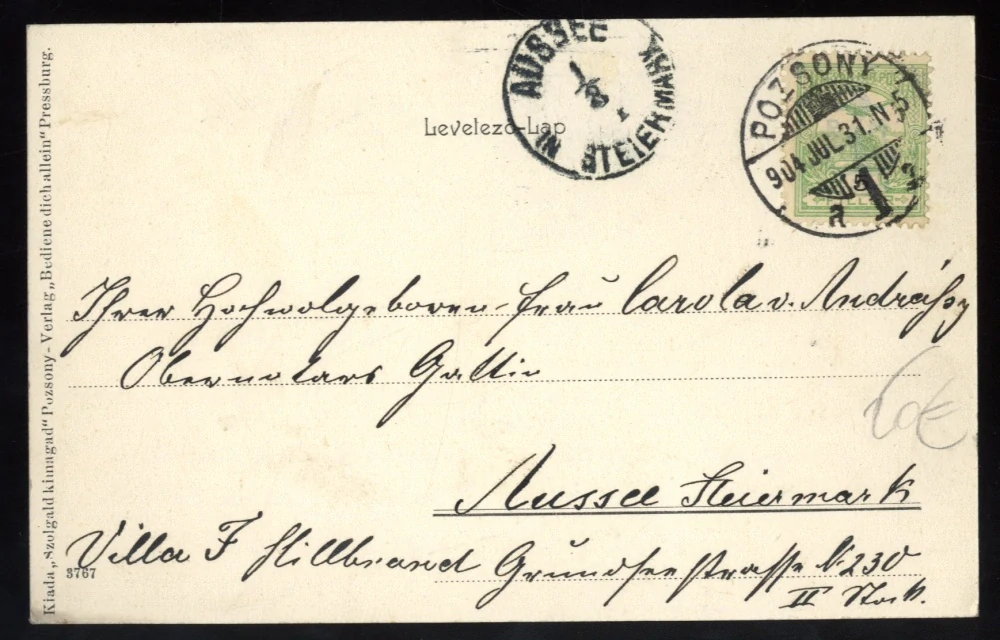 AUSSEE
IN STEIERMARK
1/8
POZSONY
904 JUL. 31. N 5
1
Levelező-Lap
Ihrer Hochwolgeboren Frau Carola v. Andráßy
Obernotars Gattin
Aussee Steiermark
Villa F Hillbrand Grundseestraße № 230
II Stock.
60€
3767
Kiada „Szolgald kinnagad“ Pozsony - Verlag „Bediene dich allein“ Pressburg.